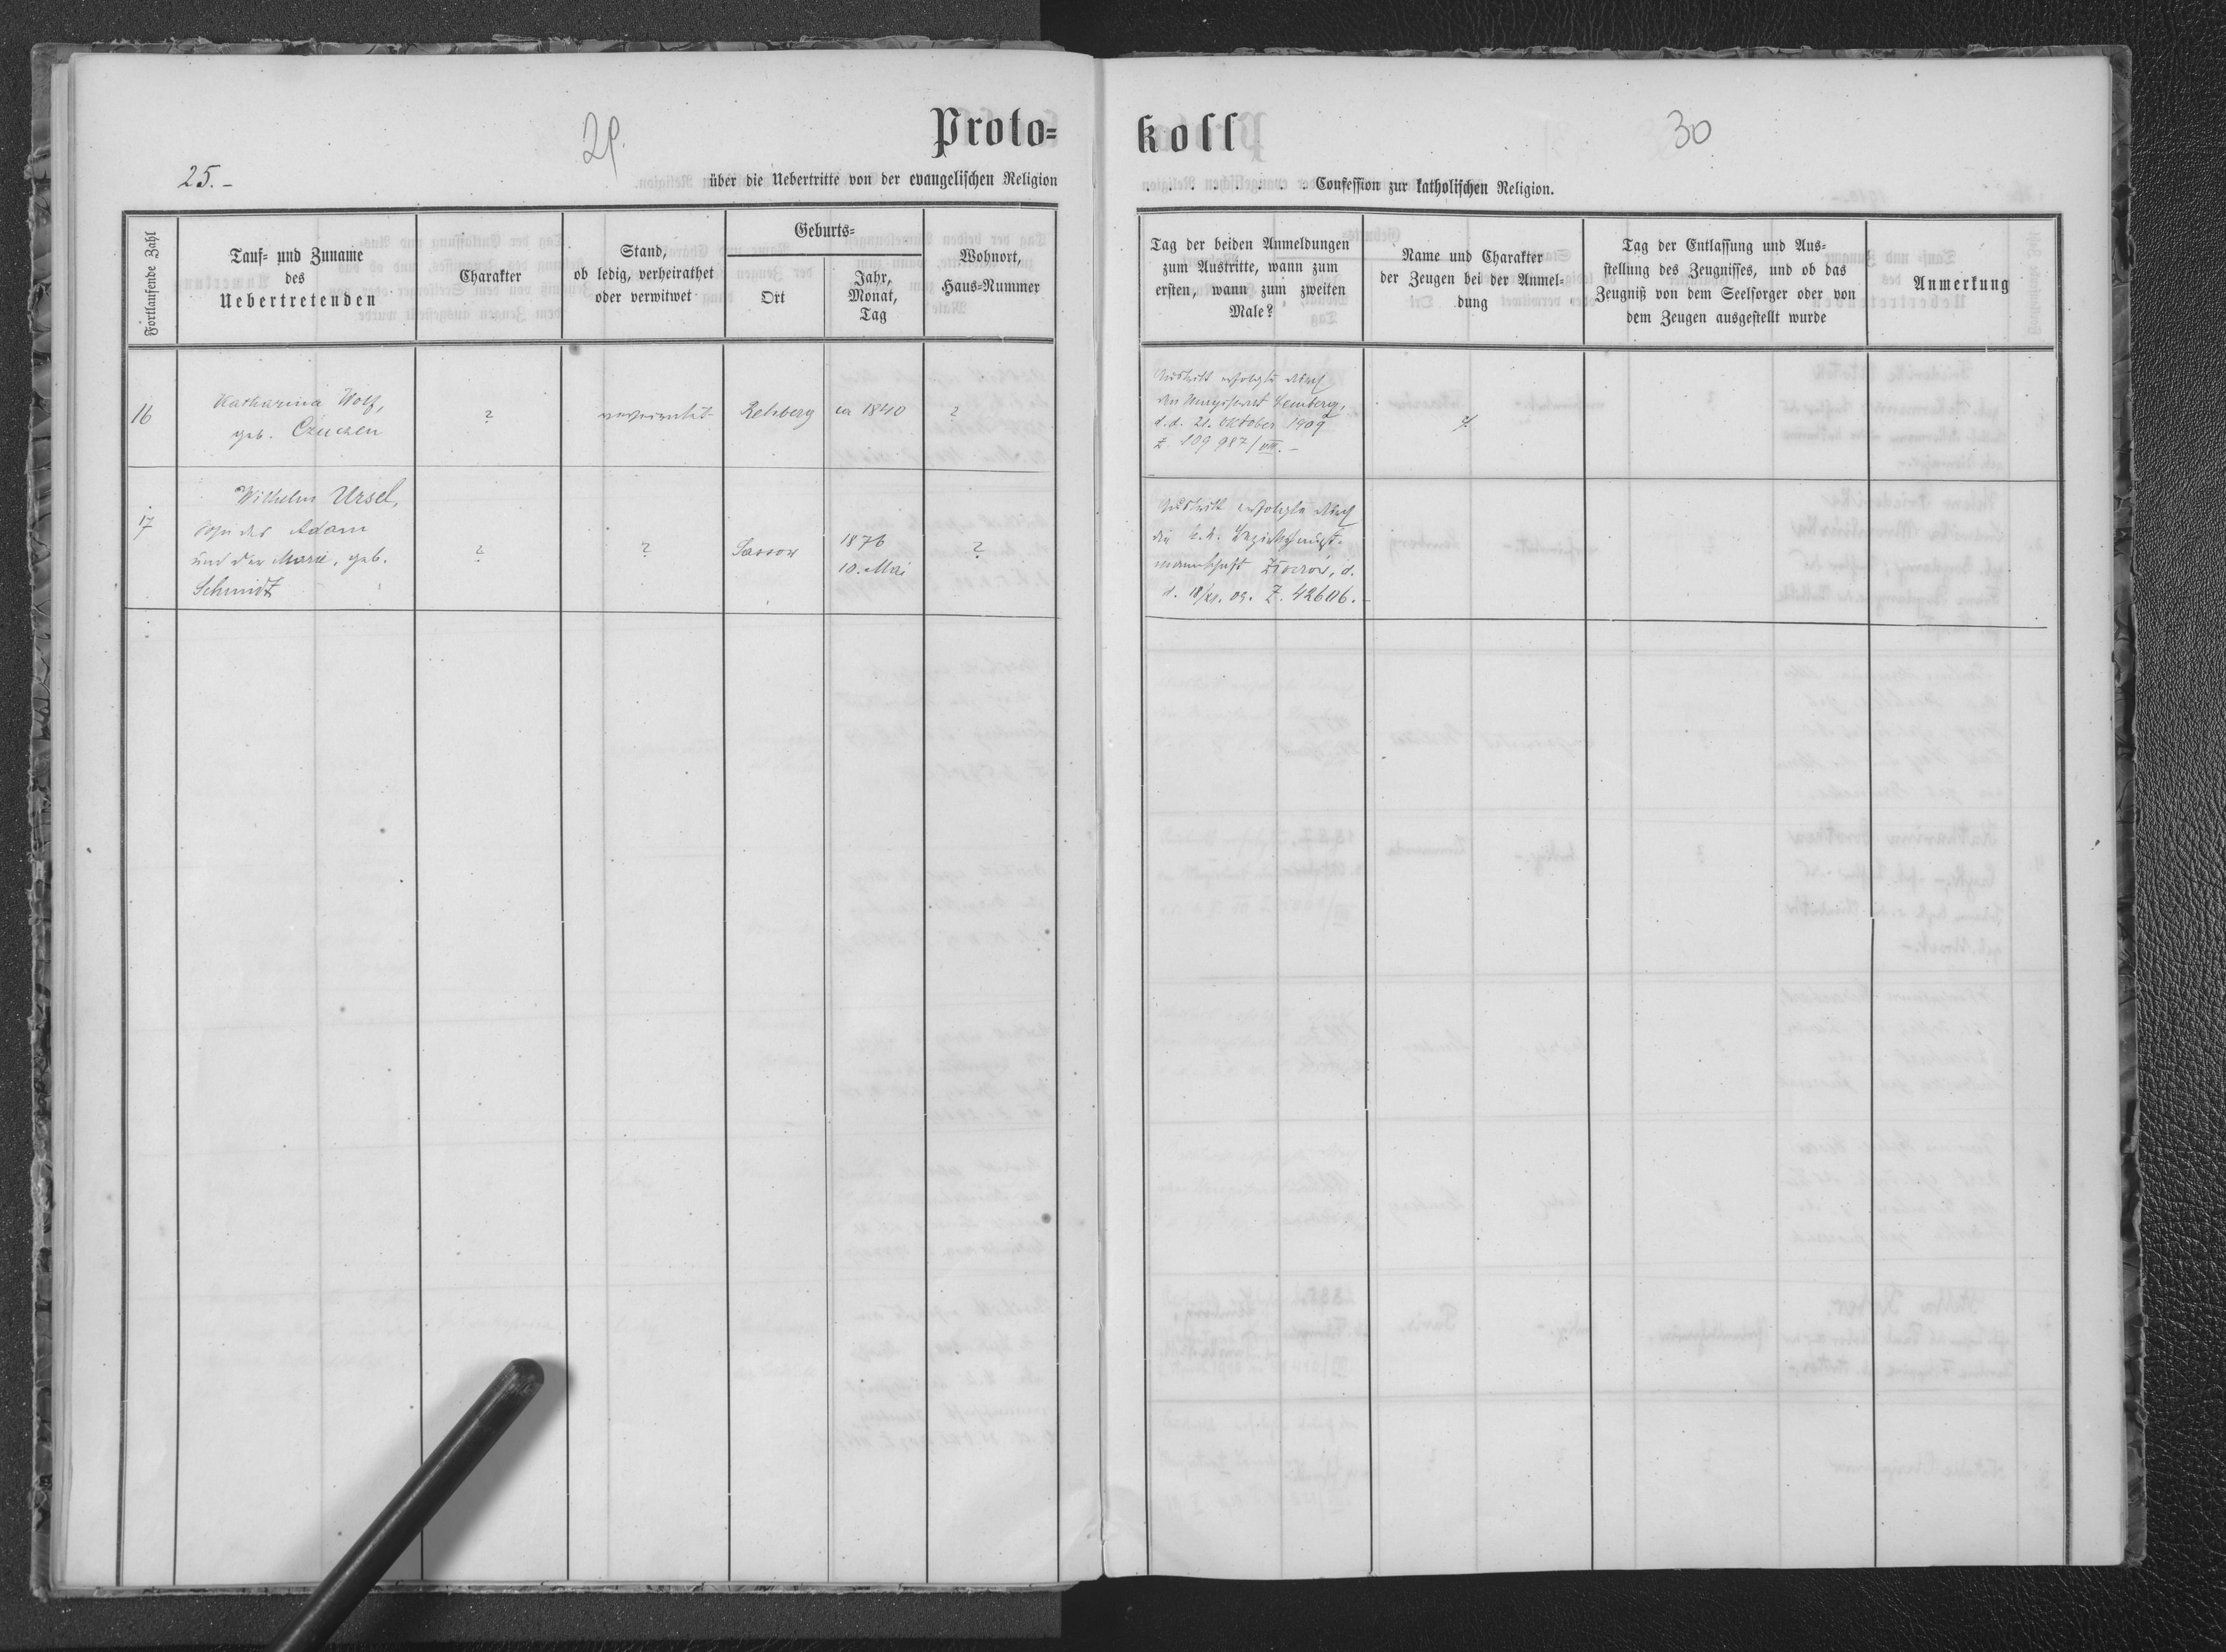 29.
Proto-
25.-
über die Uebertritte von der evangelischen Religion
Fortlaufende Zahl
Tauf- und Zuname
des
Uebertretenden
Charakter
Stand,
ob ledig, verheirathet
oder verwitwet
Geburts-
Ort
Jahr,
Monat,
Tag
Wohnort,
Haus-Nummer
16
Katharina Wolf,
geb.
?
Rehberg
ca 1840
?
17
Wilhelm Ursel,
Sohn des Adam
und der Marie, geb.
Schmidt
?
?
Sassow
1876
10. Mai
?
koll
30
. . . . . . . . Confession zur katholischen Religion.
Tag der beiden Anmeldungen
zum Austritte, wann zum
ersten, wann zum zweiten
Male?
Name und Charakter
der Zeugen bei der Anmel-
dung
Tag der Entlassung und Aus-
stellung des Zeugnisses, und ob das
Zeugniß von dem Seelsorger oder von
dem Zeugen ausgestellt wurde
Anmerkung
Austritt erfolgte durch
den Magistrat Lemberg,
d.d. 21. Oktober 1909
Z. 109 987/VIII.-
Austritt erfolgte durch
die k.k. Bezirkshaupt-
mannschaft Złoczów, d.
d. 18/XI. 09. Z. 42606.-